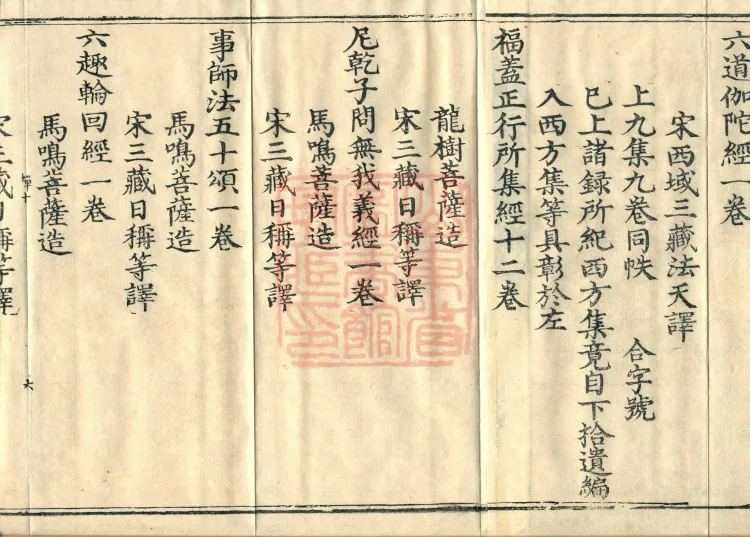 六道伽陀經一卷
宋西域三藏法天譯
上九集九卷同帙　合字號
已上諸録所紀西方集竟自下拾遺編
入西方集等具彰於左
福蓋正行所集經十二卷
龍樹菩薩造
宋三藏日稱等譯
尼乾子問無我義經一卷
馬鳴菩薩造
宋三藏日稱等譯
事師法五十頌一卷
馬鳴菩薩造
宋三藏日稱等譯
六趣輪回經一卷
馬鳴菩薩造
六
宋三藏日稱等譯